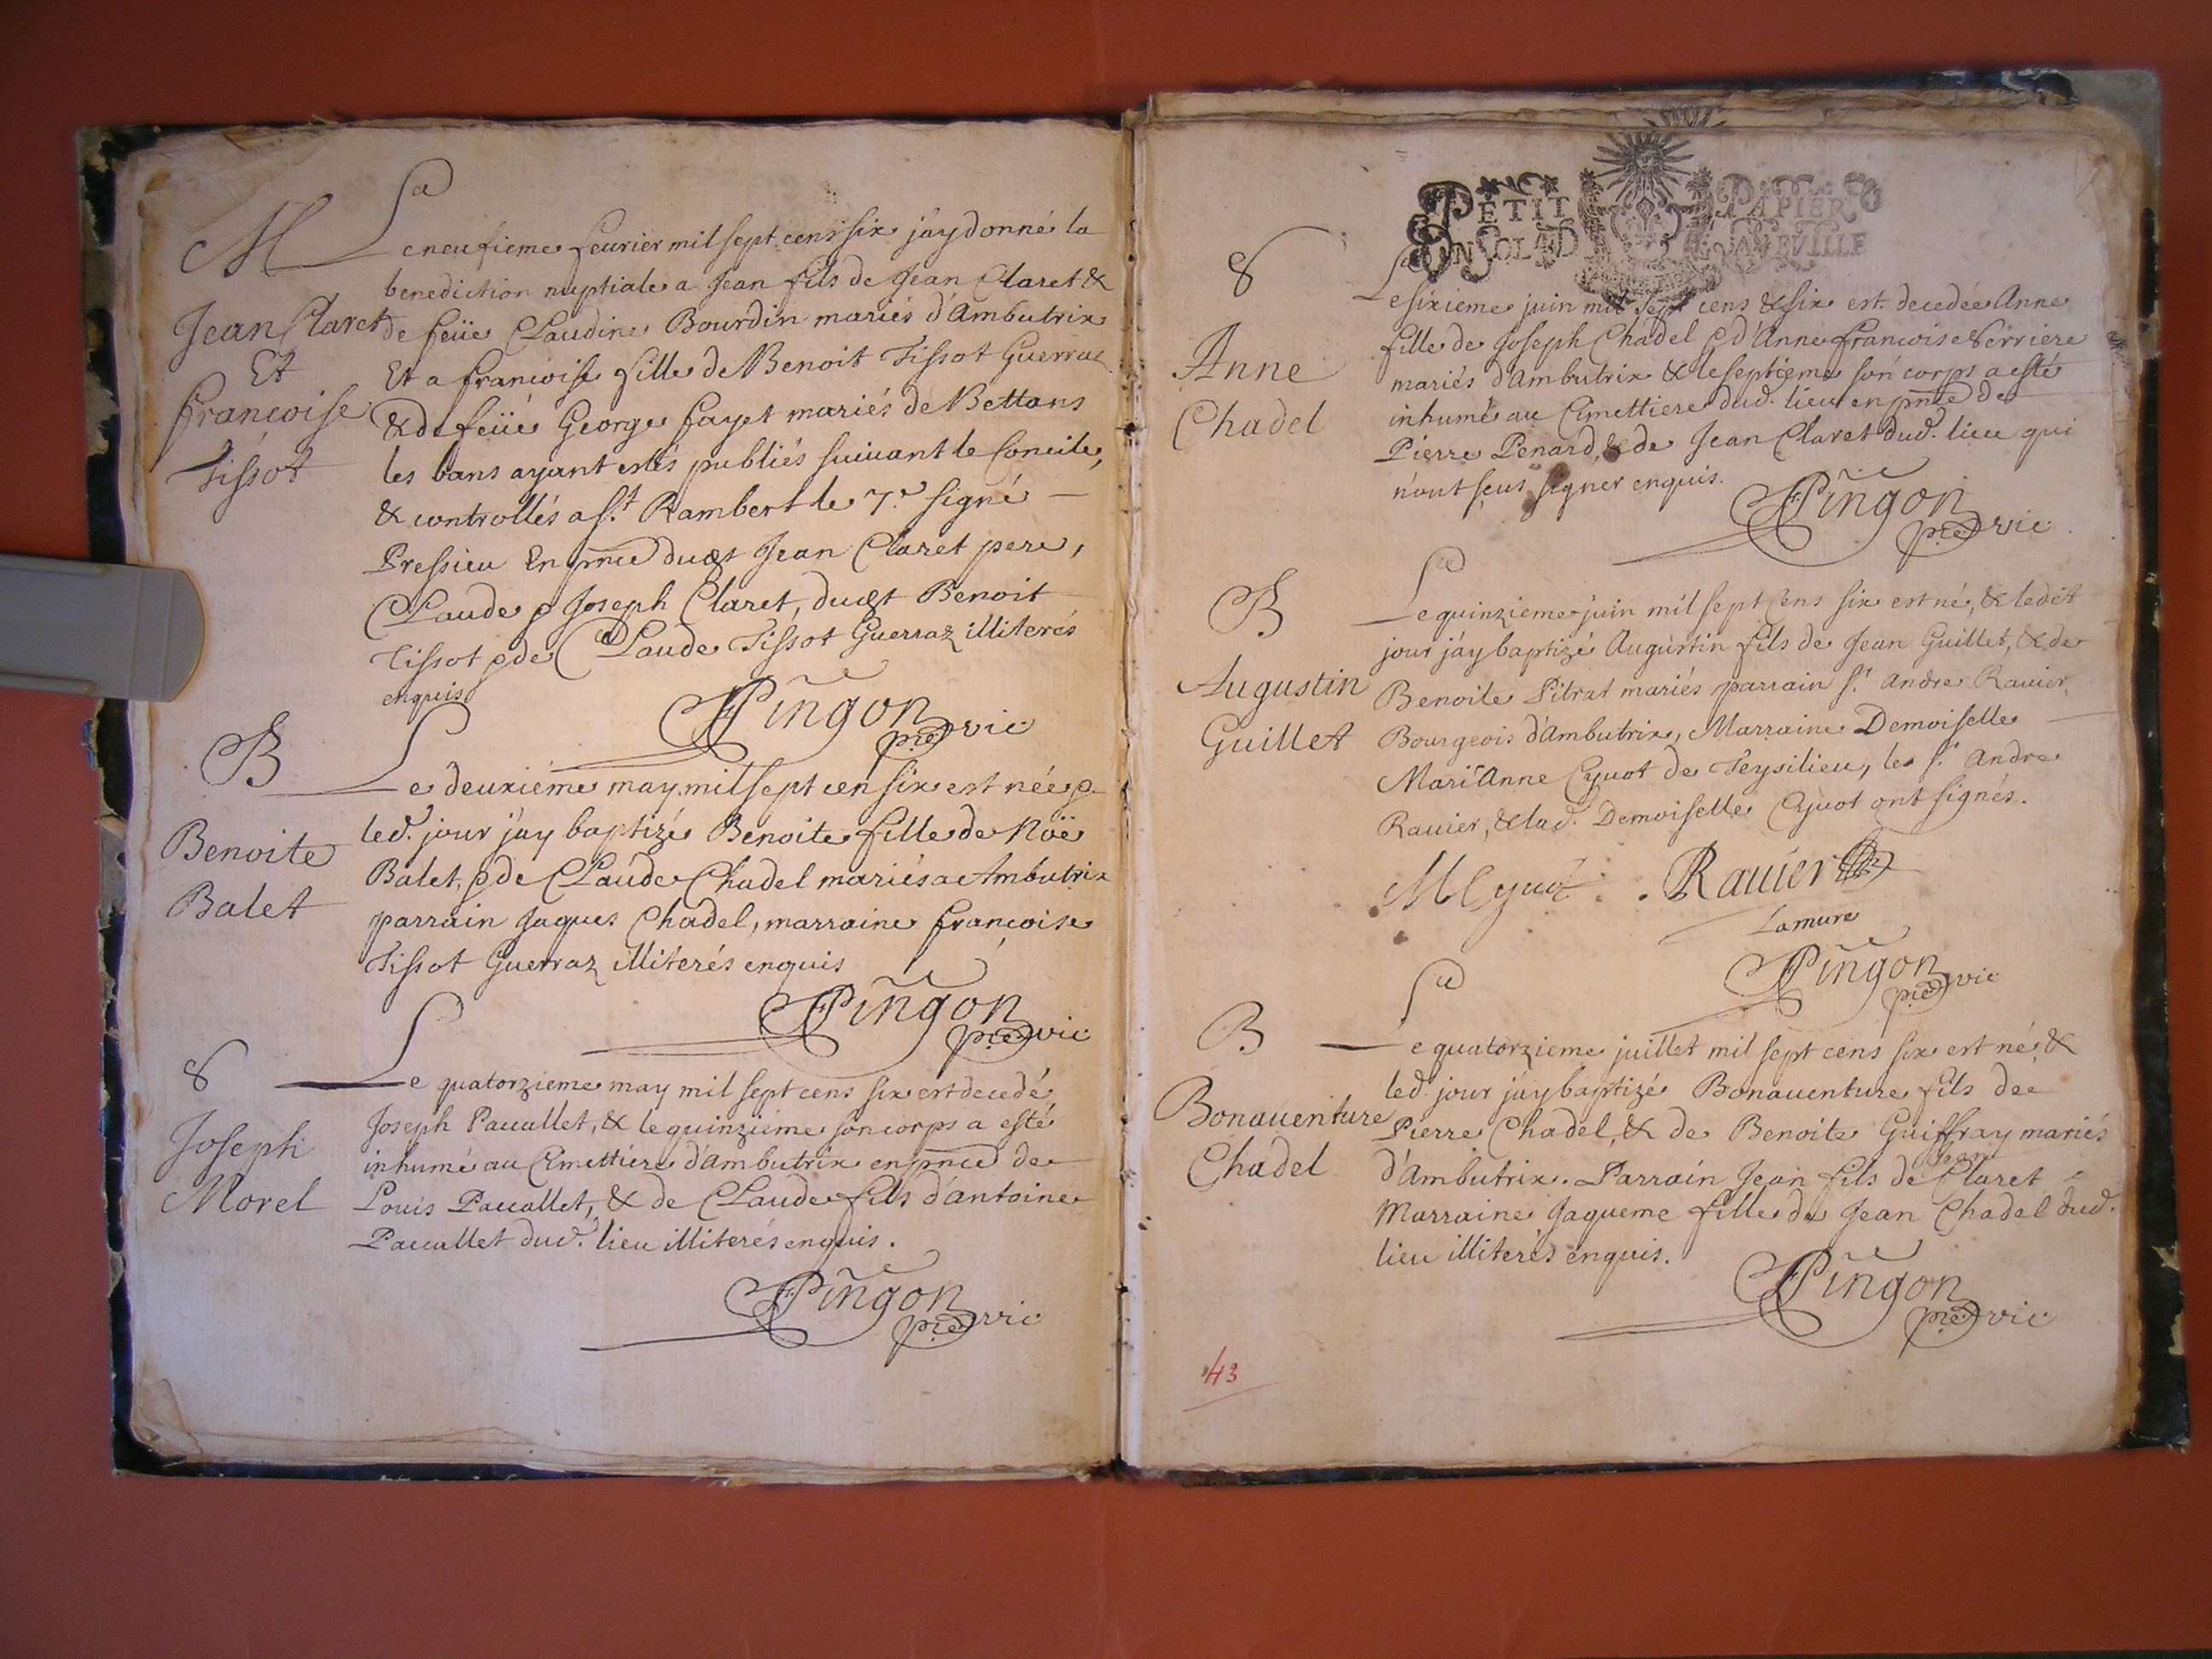 M
Jean Claret
Et
francoise
Tissot
Le neufieme feurier mil sept cens six j'ay donné la
benediction nuptiale a Jean fils de Jean Claret &
de feüe Claudine Bourdin mariés d'Ambutrix
Et a francoise fille de Benoit Tissot Guerraz
& de feüe George fayet mariés de Bettans
les bans ayant estés publiés suiuant le Concile,
& controllés a st. Rambert le 7e. signé
Pressieu En pñce dud Jean Claret pere,
Claude & Joseph Claret, dud Benoit
Tissot & de Claude Tissot Guerraz illiterés
enquis
Pingon
pre vic
B
Benoite
Balet
Le deuxiéme may mil sept cen six est née &
led. jour j'ay baptizé Benoite fille de Noë
Balet, & de Claude Chadel mariés a Ambutrix
parrain Jaques Chadel, marraine francoise
Tissot Guerraz illiterés enquis
Pingon
pre vic
8
Joseph
Morel
Le quatorzieme may mil sept cens six est decedé
Joseph Paccallet, & le quinzieme son corps a esté
inhumé au Cimettiere d'ambutrix en pñce de
Louis Paccallet, & de Claude fils d'antoine
Paccallet dud. lieu illiterés enquis.
Pingon
pre vic
PETIT PAPIER
EN SOL AD
8
Anne
Chadel
Le sixieme juin mil sept cens & six est decedée Anne
fille de Joseph Chadel & d'Anne francoise Verriere
mariés d'Ambutrix & le septieme son corps a esté
inhumé au Cimettiere dud. lieu en pñce de
Pierre Penard, & de Jean Claret dud. lieu qui
n'ont sçus signer enquis.
Pingon
pre vic
B
Augustin
Guillet
Le quinzieme juin mil sept cens six est né, & ledit
jour j'ay baptizé Augustin fils de Jean Guillet, & de
Benoite Pitrat mariés parrain sr. andre Rauier
Bourgeois d'Ambutrix, Marraine Demoiselle
Mari'Anne Cyuot de Teysilieu, le sr. andre
Rauier, & lad. Demoiselle Cyuot ont signés.
M Cyuot Rauier
Lamure
Pingon
pre vic
B
Bonauenture
Chadel
Le quatorzieme juillet mil sept cens six est né &
led. jour j'ay baptizé Bonauenture fils de
Pierre Chadel, & de Benoite Guiffray mariés
d'Ambutrix. Parrain Jean fils de Jean Claret
Marraine Jaqueme fille de Jean Chadel dud.
lieu illiterés enquis.
Pingon
pre vic
43